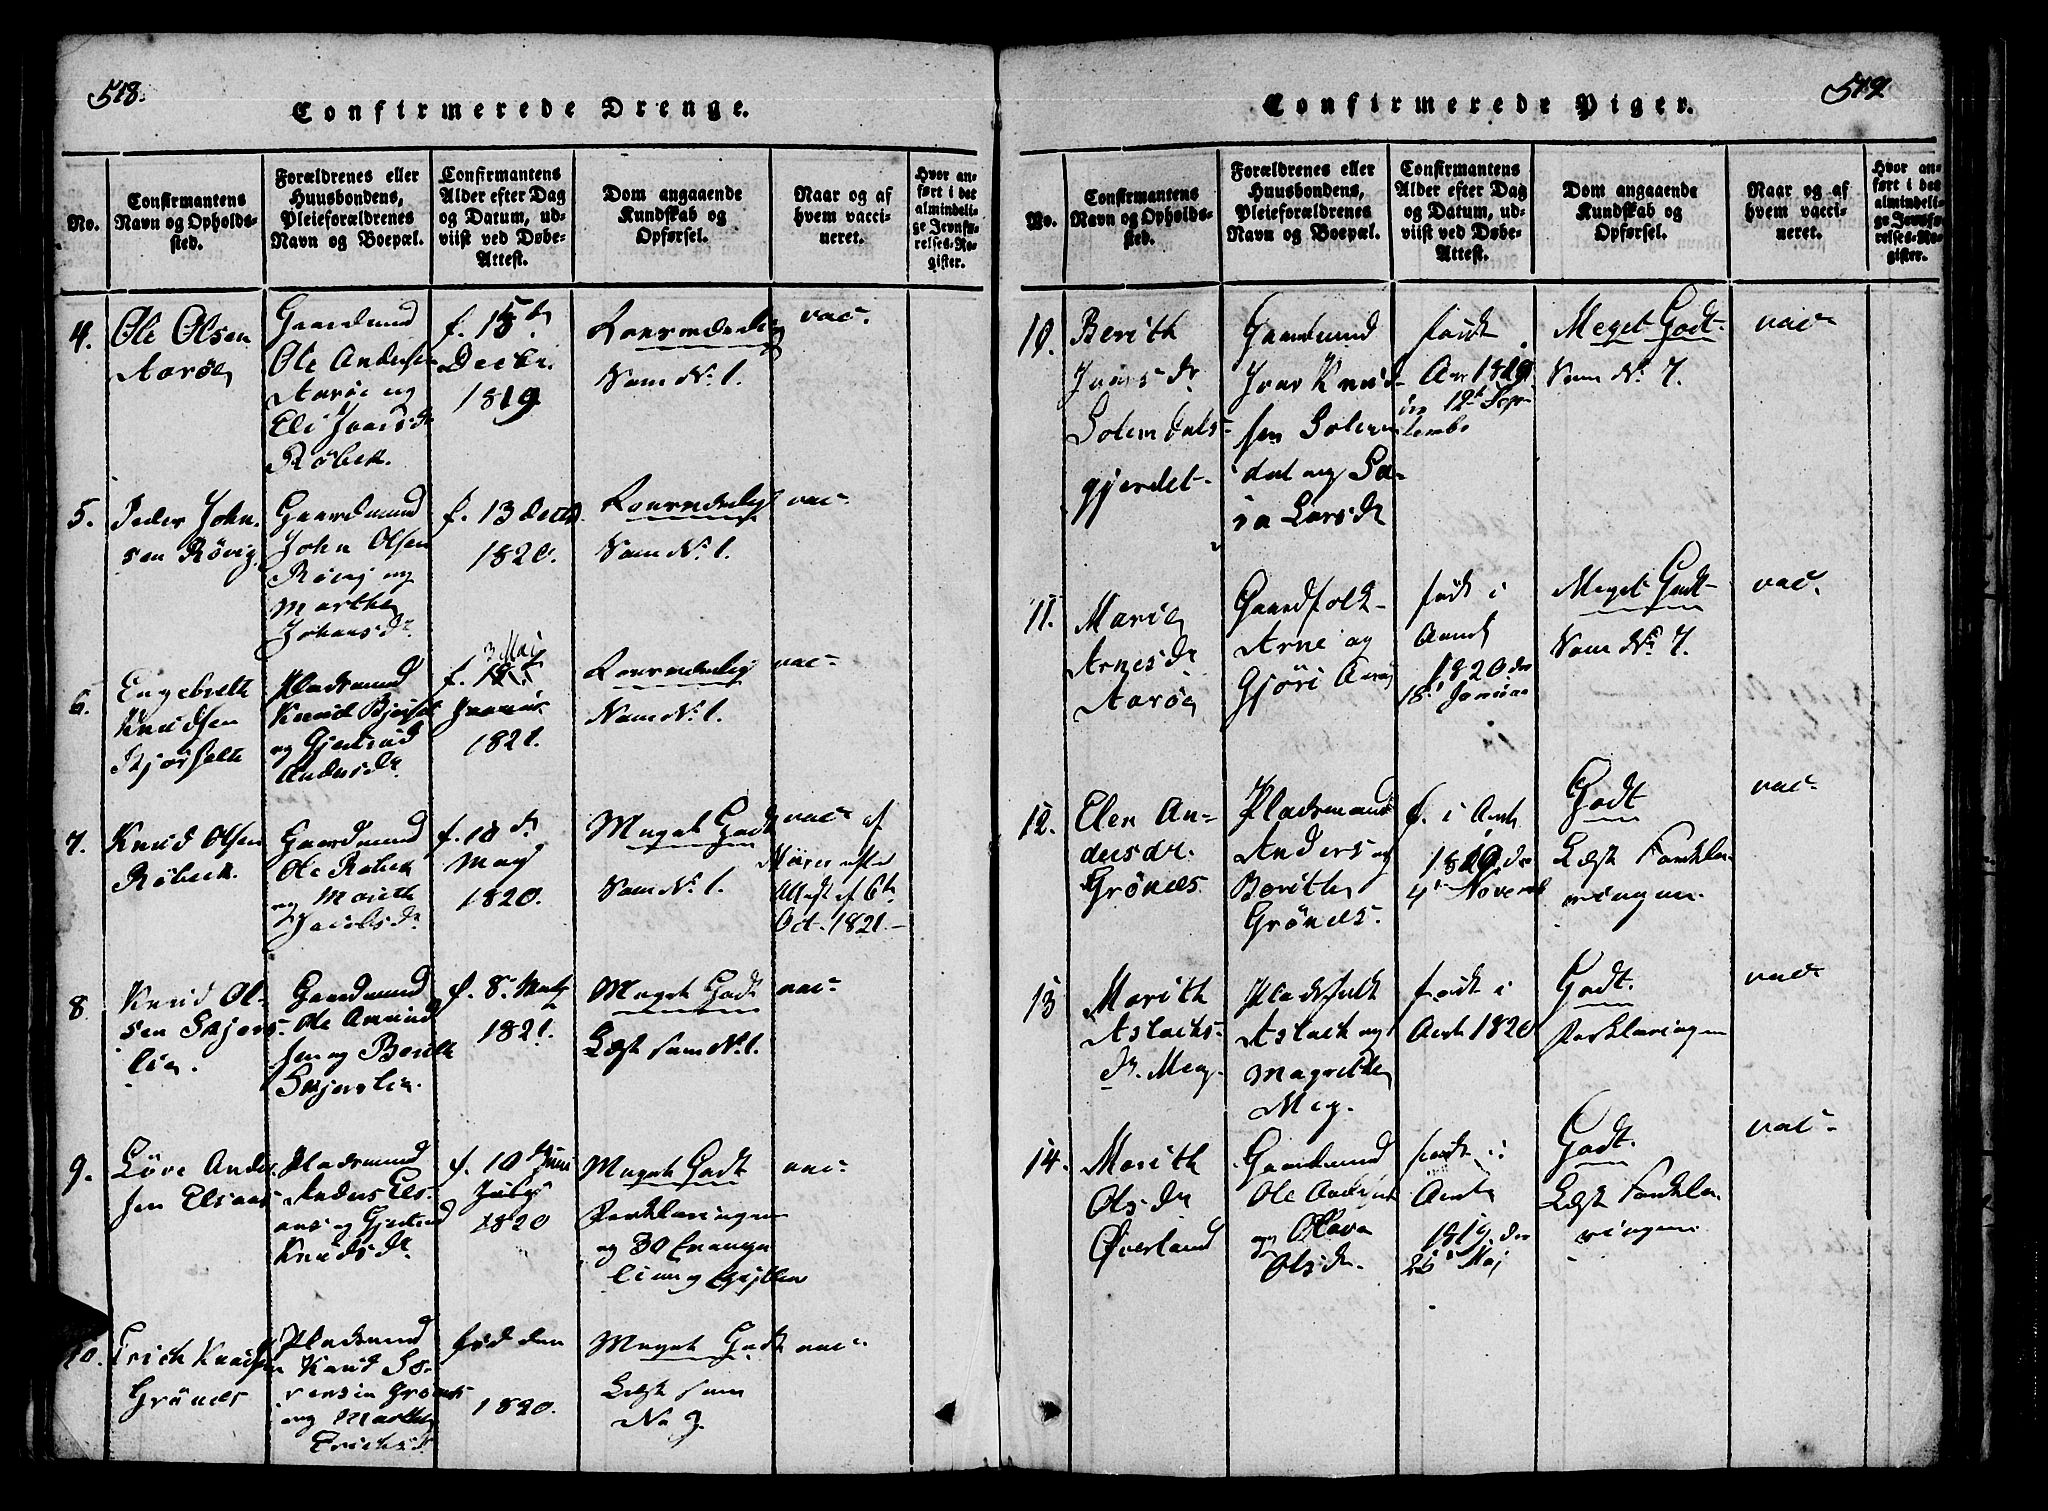 518.
Confirmerede Drenge.
No.
Confirmantens
Navn og Opholds-
sted.
Forældrenes eller
Huusbondens,
Pleieforældrenes
Navn og Boepæl.
Confirmantens
Alder efter Dag
og Datum, ud-
viist ved Døbe-
Attest.
Dom angaaende
Kundskab og
Opførsel.
Naar og af
hvem vacci-
neret.
Hvor an-
ført i det
almindeli-
ge Jevnfø-
relses-Re-
gister.
4.
Ole Olsen
Aarøe
Gaardmand
Ole Andersen
Aarøe og
Eli Ivarsdr
Røbek.
f. 15de
Decbr.
1819
Som No. 1.
vac.
5.
Peder John-
sen Røvig
Gaardmand
John Olsen
Røvig og
Marthe
Johansdr.
f. 13 Decbr.
1820.
Som No. 1.
vac.
6.
Engebreth
Knudsen
Bjørseth
Pladsmand
Knud Bjørset
og Gjertrud
Andersdr.
f.
3 Maj
1821.
Som No. 1.
vac.
7.
Knud Olsen
Røbek.
Gaardmand
Ole Røbek
og Marith
Jacobsdr
f. 10 de
May
1820.
Meget Godt
Som No. 1.
vac. af
efter
Attest af 6te
Oct. 1821.
8.
Knud Ol-
sen Skjors-
lien.
Gaardmand
Ole Amund
sen og Berith
Skjorslien.
f. 8. May
1821.
Meget Godt
Læst som No. 1.
vac.
9.
Løve Ander
sen Elsaas
Pladsmand
Anders Els-
aas og Gjertrud
Knudsdr
f. 10 de Juni
July
1820
Meget Godt
Forklaringen
og 30 Evange
lier og Epistler
vac.
10.
Erich Knudsen
Grønnes
Pladsmand
Knud Sø-
rensen Grønnes
og Marthe
Erichsdr
fød den
1820.
Meget Godt
Læst som
No 9.
vac.
519
Confirmerede Piger.
No.
Confirmantens
Navn og Opholds-
sted.
Forældrenes eller
Huusbondens,
Pleieforældrenes
Navn og Boepæl.
Confirmantens
Alder efter Dag
og Datum, ud-
viist ved Døbe-
Attest.
Dom angaaende
Kundskab og
Opførsel.
Naar og af
hvem vacci-
neret.
Hvor an-
ført i det
almindeli-
ge Jevnfø-
relses-Re-
gister.
10.
Berith
Ivarsdr
Solemdals-
gjerdet.
Gaardmand
Ivar Knud-
sen Solem
dal og Sa-
ra Larsdr
født
Aar 1820
den 12te Sep-
tember
Meget Godt.
Som No. 7.
vac.
11.
Marie
Arnesdr
Aarøe
Gaardfolk
Arne og
Gjøri Aarøe
født i
Aaret
1820 den
18de Januar
Meget Godt
Som No. 7.
vac.
12.
Elen An-
dersdr.
Grønnes
Pladsmand
Anders og
Berith
Grønnes.
f. i Aaret
1819 den
4de Novemb
Godt
Læst Forkla-
ringen.
vac.
13
Marith
Aslachs-
dr. Meg.
Pladsfolk
Aslach og
Magrethe
Meg.
født i
Aaret 1820
Godt.
Forklaringen
vac.
14.
Marith
Olsdr
Øverland
Gaardmand
Ole Andersen
og Olava
Olsdr.
født i
Aaret
1819 den
26de Maj
Godt.
Læst Forkla-
ringen
vac.